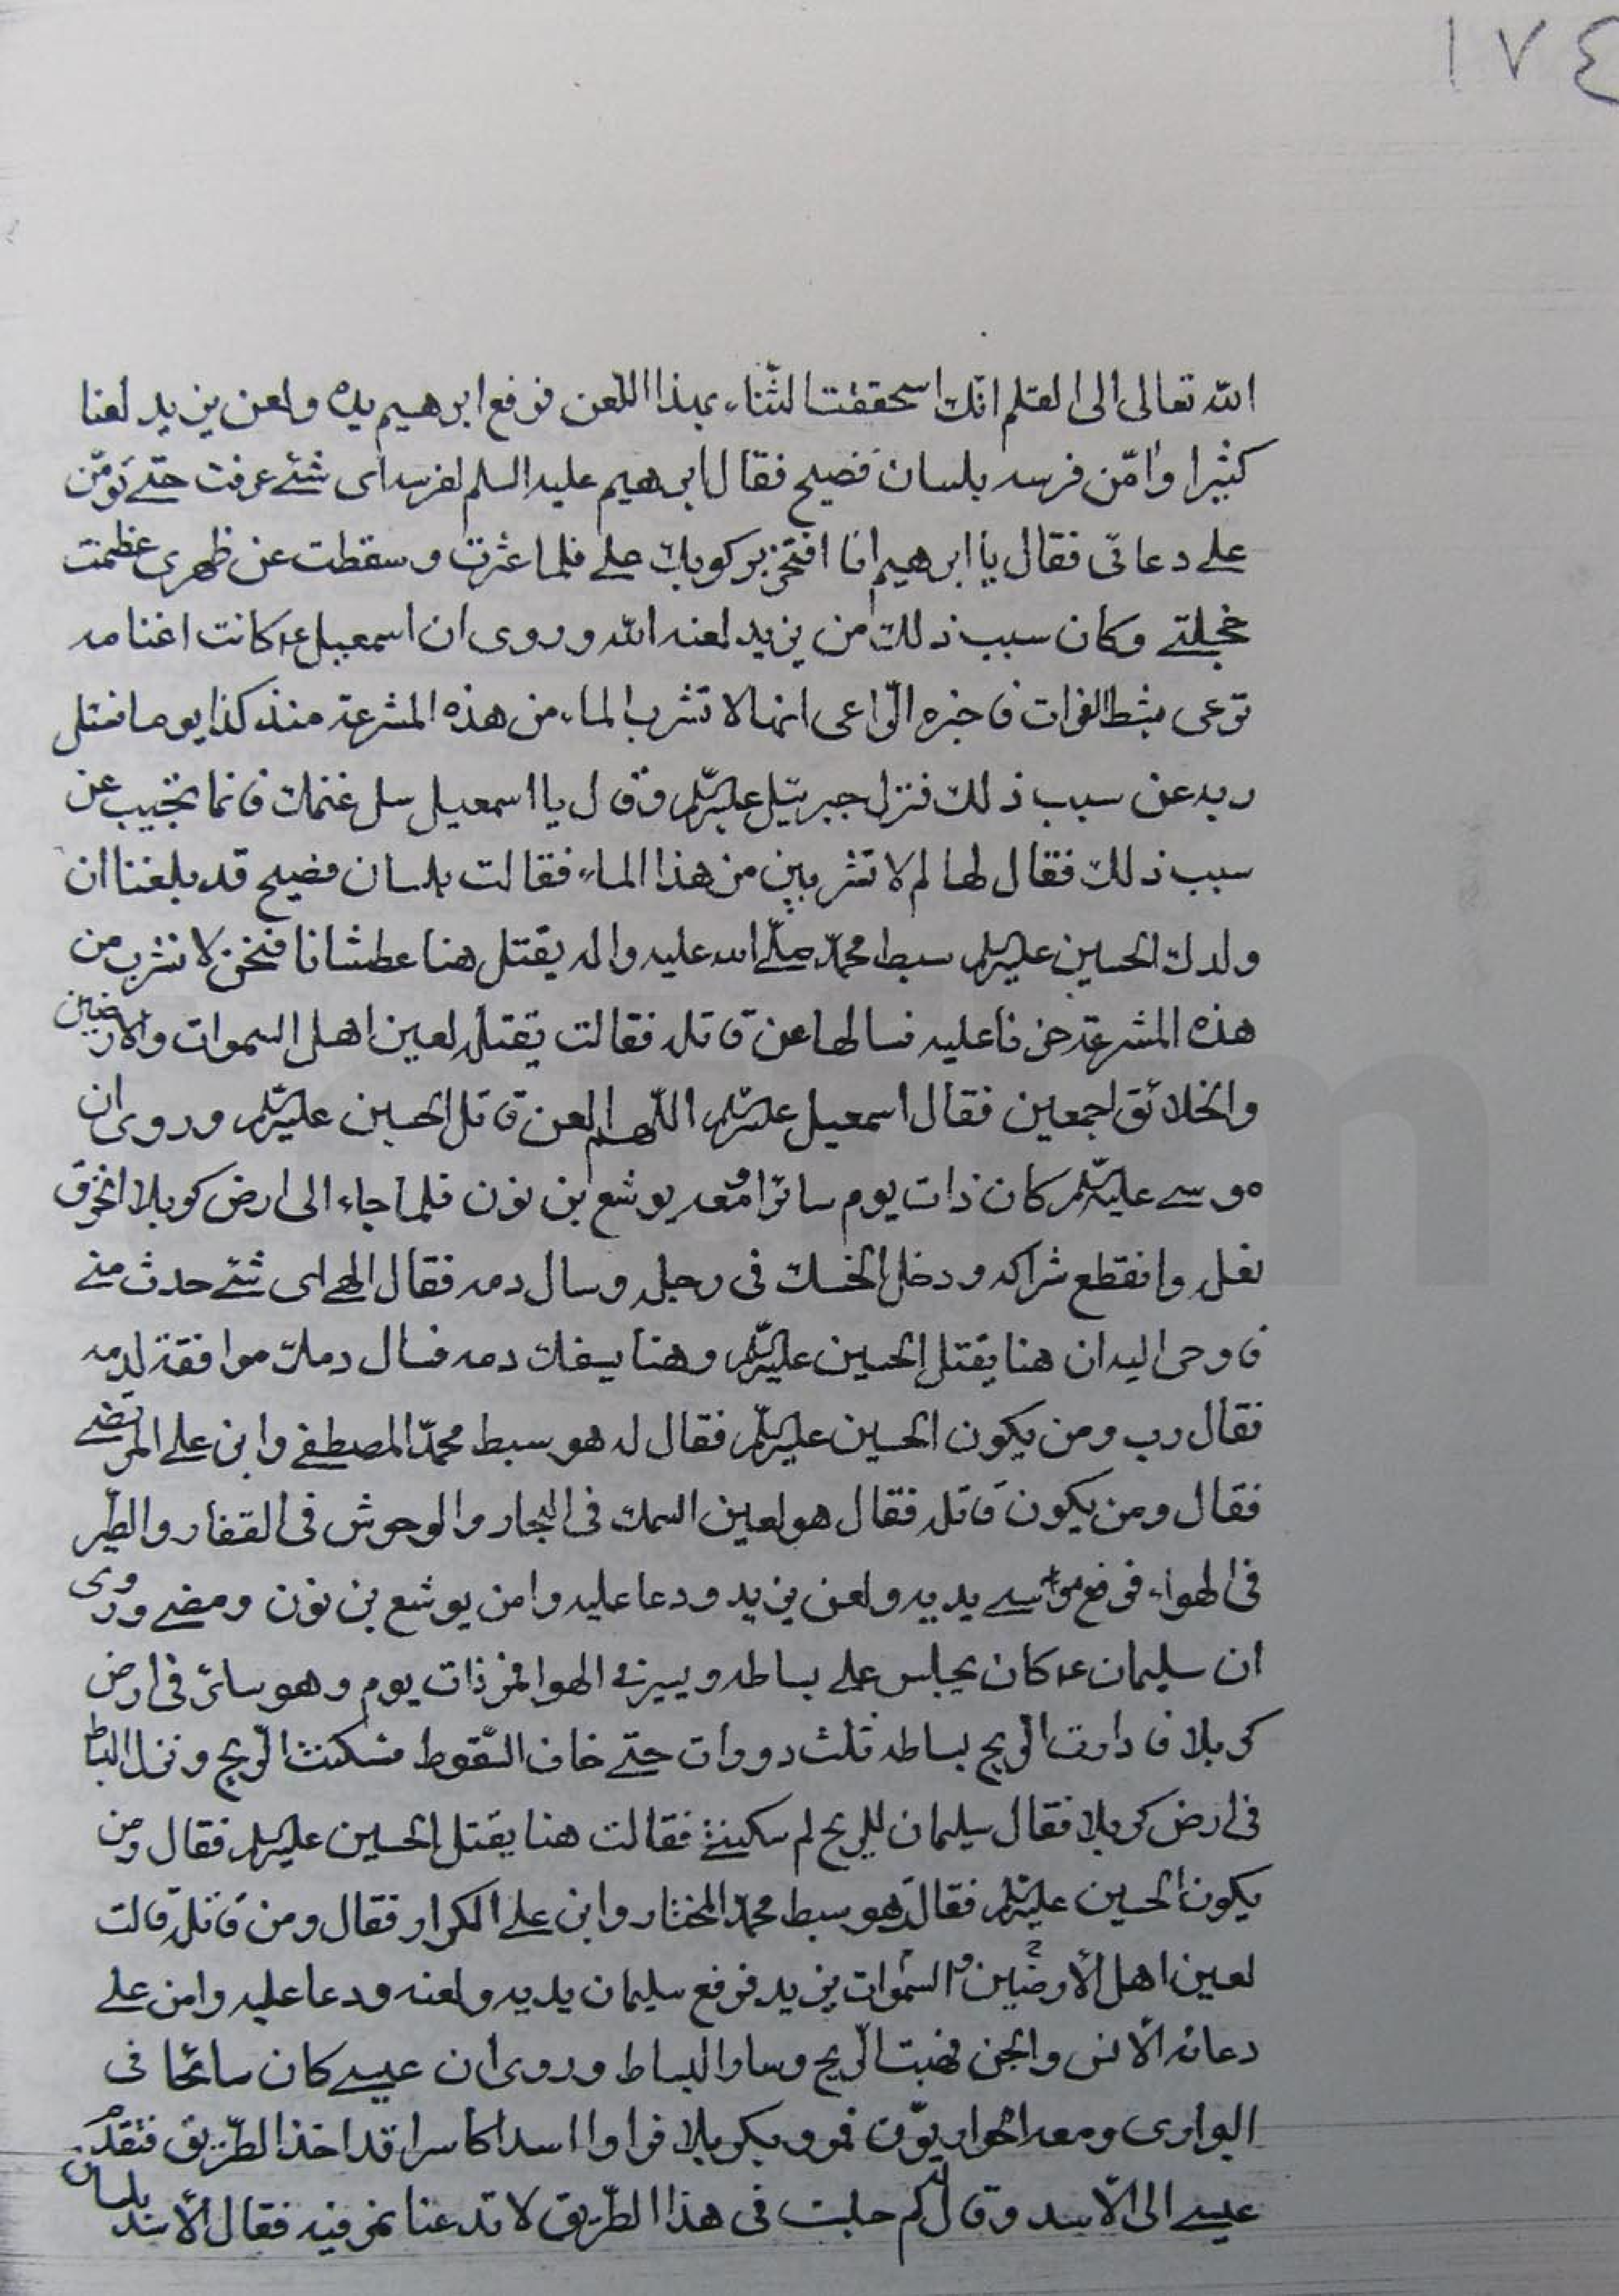 ١٧٤
الله تعالى الى القلم انك استحققت الثناء بهذا اللعن فرفع ابرهيم يده ولعن يزيد لعنا
كثيرا وامّن فرسه بلسان فصيح فقال ابرهيم عليه السلم لفرسه اى شئ عرفت حتى تؤمّن
على دعائى فقال يا ابرهيم انا افتخر بركوبك على فلما عثرت وسقطت عن ظهرى عظمت
خجلتى وكان سبب ذلك من يزيد لعنه الله وروى ان اسمعيل ع كانت اغنامه
ترعى بشط الفرات فاخبره الرّاعى انها لا تشرب الماء من هذه المشرعة منذ كذا يوما فسئل
ربه عن سبب ذلك فنزل جبرئيل عليه السلم وقال يا اسمعيل سل غنمك فانها تجيب عن
سبب ذلك فقال لها لم لا تشربين من هذا الماء فقالت بلسان فصيح قد بلغنا ان
ولدك الحسين عليه السلم سبط محمّد صلى الله عليه واله يقتل هنا عطشانا فنحن لا نشرب من
هذه المشرعة حزنا عليه فسالها عن قاتله فقالت يقتله لعين اهل السموات والارضين
والخلائق اجمعين فقال اسمعيل عليه السلم اللّهم العن قاتل الحسين عليه السلم وروى ان
موسى عليه السلم كان ذات يوم سائرا ومعه يوشع بن نون فلما جاء الى ارض كربلا انخرق
نعله وانقطع شراكه ودخل الخسك فى رجله وسال دمه فقال الهى اى شئ حدث منى
فاوحى اليه ان هنا يقتل الحسين عليه السلم وهنا يسفك دمه فسال دمك موافقة لدمه
فقال رب ومن يكون الحسين عليه السلم فقال له هو سبط محمّد المصطفى وابن على المرتضى
فقال ومن يكون قاتله فقال هو لعين السمك فى البحار والوحوش فى القفار والطّير
فى الهواء فرفع موسى يديه ولعن يزيد ودعا عليه وامن يوشع بن نون ومضى وروى
ان سليمان ع كان يجلس على بساطه ويسير فى الهوا فمر ذات يوم وهو سائر فى ارض
كربلا فادارت الرّيح بساطه ثلث دورات حتى خاف السّقوط فسكنت الرّيح ونزل البساط
فى ارض كربلا فقال سليمان للريح لم سكنتى فقالت هنا يقتل الحسين عليه السلم فقال ومن
يكون الحسين عليه السلم فقال هو سبط محمّد المختار وابن على الكرار فقال ومن قاتله قالت
لعين اهل الأرضين والسّموات يزيد فرفع سليمان يديه ولعنه ودعا عليه وامن على
دعائه الأنس والجن فهبت الرّيح وسار البساط وروى ان عيسى كان سائحا فى
البوارى ومعه الحواريّون فمرو بكربلا فراوا اسدا كاسرا قد اخذ الطّريق فتقدم
عيسى الى الأسد وقال لم جلست فى هذا الطّريق لا تدعنا نمر فيه فقال الأسد بلسان